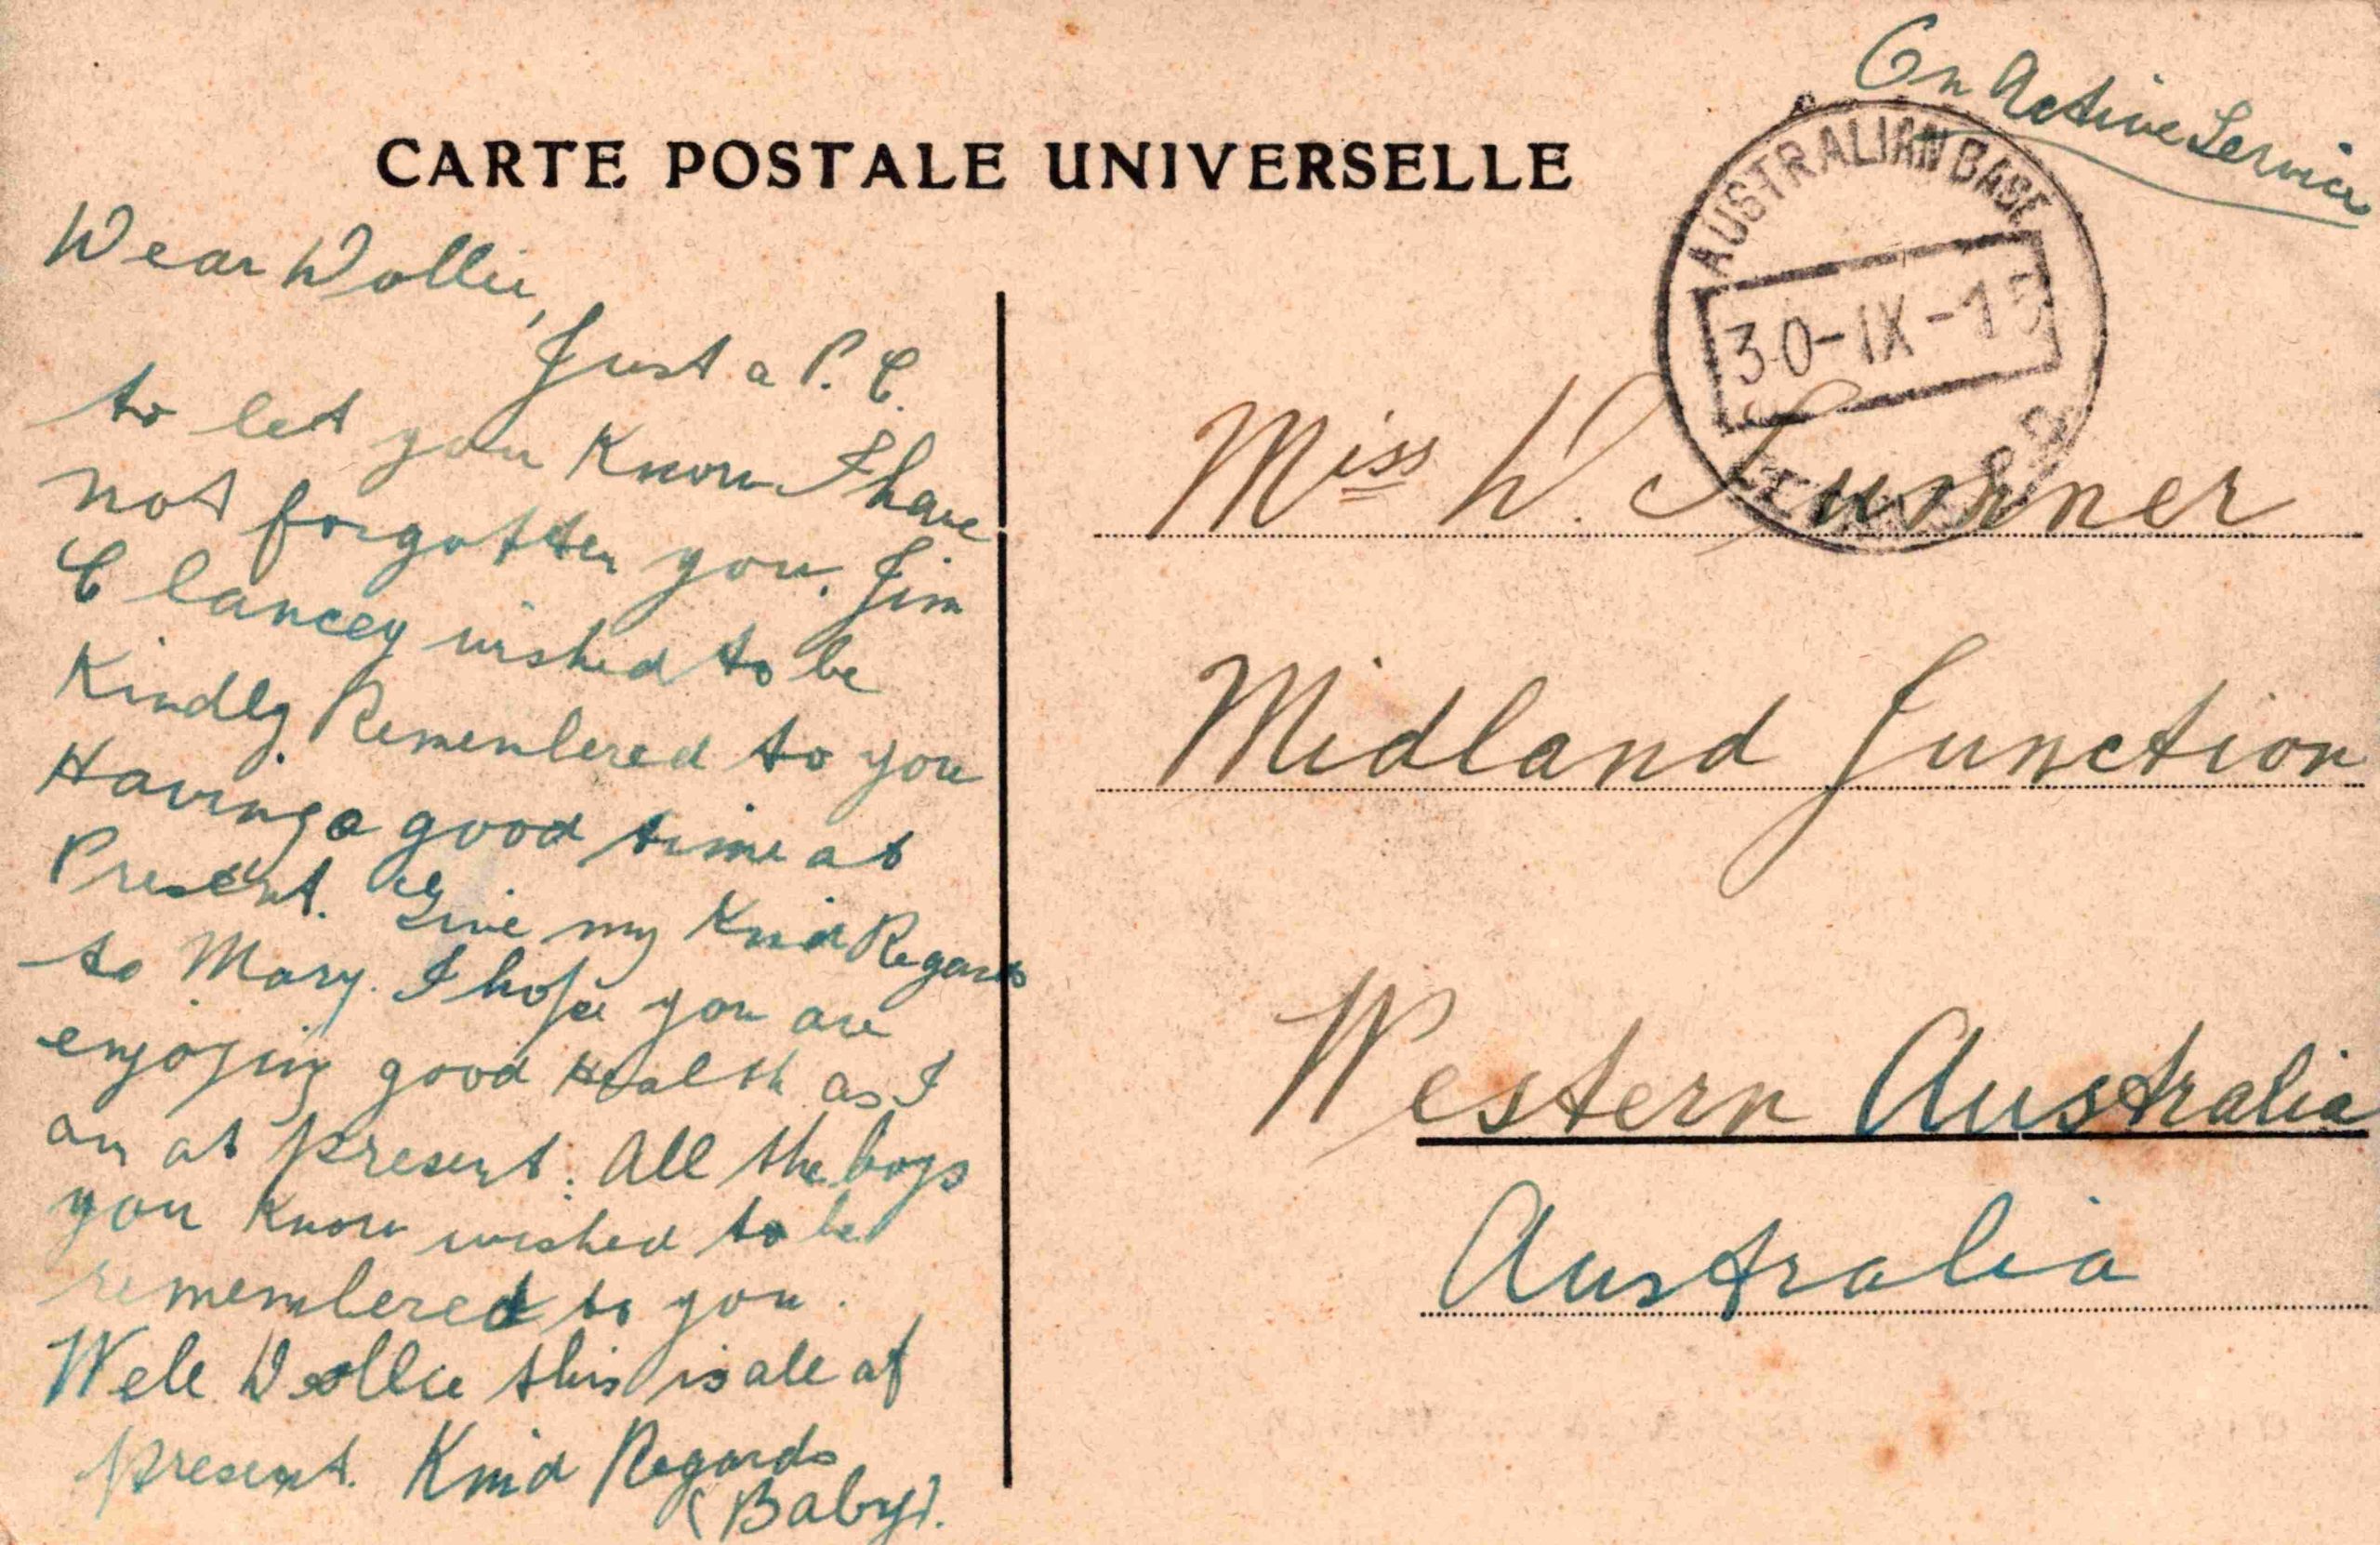 On Active Service
CARTE POSTALE UNIVERSELLE
AUSTRALIAN BASE
30-IX-15
Dear Dollie,
Just a P. C.
to let you Know I have
not forgotten you. Jim
Clancey wished to be
Kindly Remembered to you
Having a good time at
Present. Give my Kind Regards
to Mary. I hope you are
enjoying good Health as I
am at present. All the boys
you Know wished to be
remembered to you.
Well Dollie this is all at
present. Kind Regards
(Baby).
Miss D. Turner
Midland Junction
Western Australia
Australia